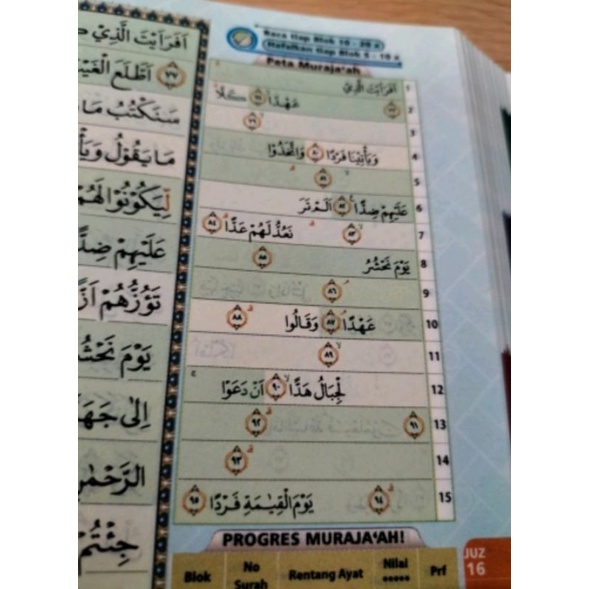 Baca tiap Blok 10 - 20 x
Hafalkan tiap Blok 5 - 10 x
Peta Muraja'ah
اَفَرَاَيْتَ الَّذِيْ 1
٧٧ عَهْدًا ٧٨ كَلَّا 2
٧٩ 3
وَيَأْتِيْنَا فَرْدًا ٨٠ وَاتَّخَذُوْا 4
٨١ 5
عَلَيْهِمْ ضِدًّا ٨٢ اَلَمْ تَرَ 6
٨٣ نَعُدُّ لَهُمْ عَدًّا ٨٤ 7
يَوْمَ نَحْشُرُ ٨٥ 8
٨٦ 9
عَهْدًا ٨٧ وَقَالُوا ٨٨ 10
٨٩ 11
لْجِبَالُ هَدًّا ٩٠ اَنْ دَعَوْا 12
٩١ ٩٢ 13
٩٣ 14
٩٤ يَوْمَ الْقِيٰمَةِ فَرْدًا ٩٥ 15
PROGRES MURAJA'AH!
Blok No Surah Rentang Ayat Nilai Prf
JUZ 16
اَفَرَاَيْتَ الَّذِيْ
٧٧ اَطَّلَعَ
سَنَكْتُبُ مَا
مَا يَقُوْلُ
لِّيَكُوْنُوْا لَهُمْ
عَلَيْهِمْ
تَؤُزُّهُمْ
يَوْمَ
اِلٰى
الرَّحْمٰنِ
جِئْتُمْ